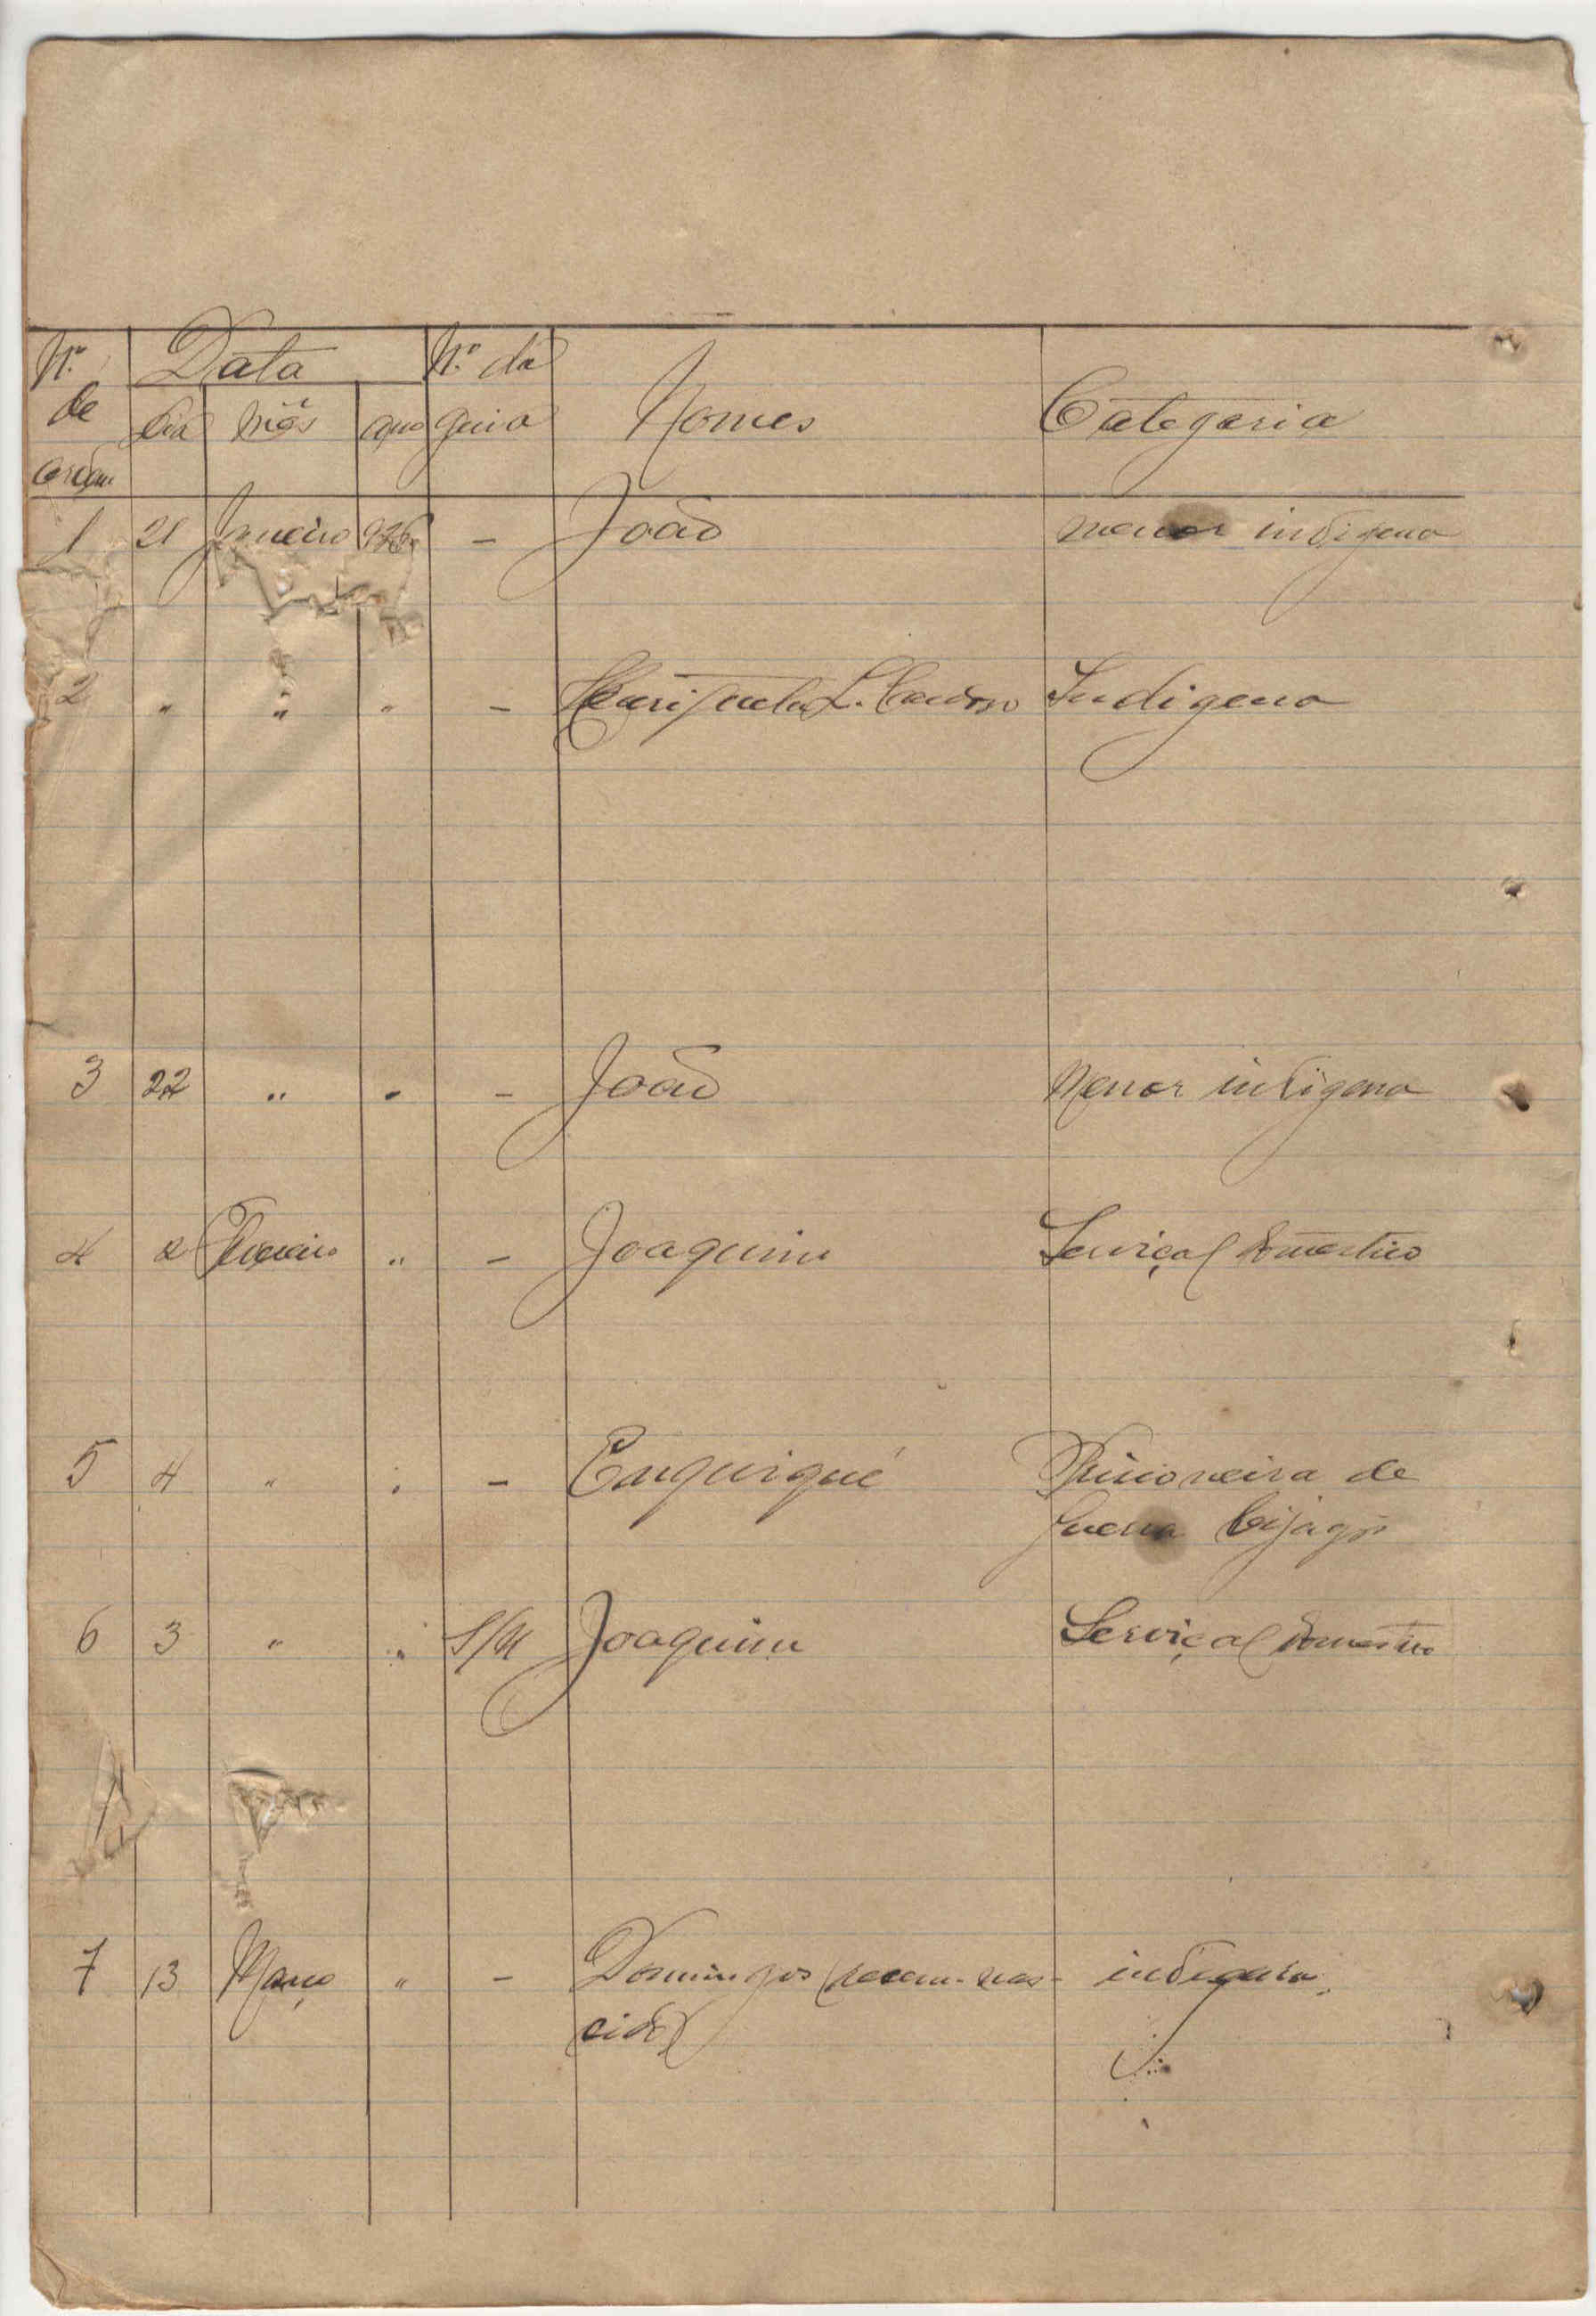 Nº de ordem Data Nº da guia Nomes Categoria
dia mês ano
1 21 Janeiro 926 - João menor indigena
2 " " " - Henriqueta L. Cardoso Indigena
3 22 " " - João Menor indigena
4 2 Fevereiro " - Joaquim Serviçal domestico
5 4 " " - Enquiqué Prisioneira de
guerra bijagós
6 3 " " S/N Joaquim Serviçal domestico
7 13 Março " - Domingos (recem-nas- indigena
cido)